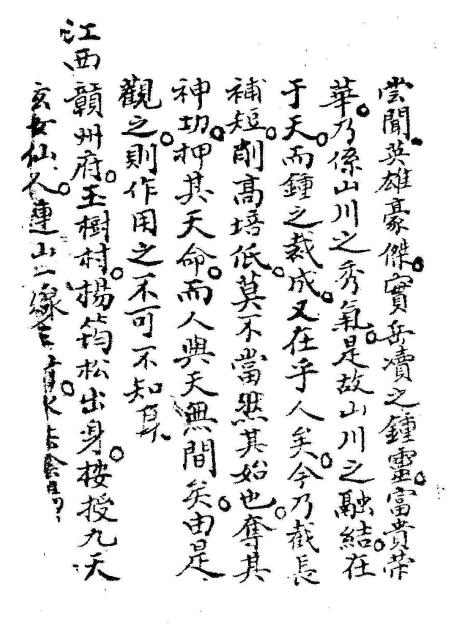 嘗聞英雄豪傑實岳瀆之鍾靈富貴荣
華乃係山川之秀氣是故山川之融結在
于天而鍾之裁成又在乎人矣今乃截長
補短削高培低莫不當然其始也奪其
神功押其天命而人與天無間矣由是
觀之則作用之不可不知耳
江西贛州府玉樹村楊筠松出身椄授九天
玄女仙人連山二